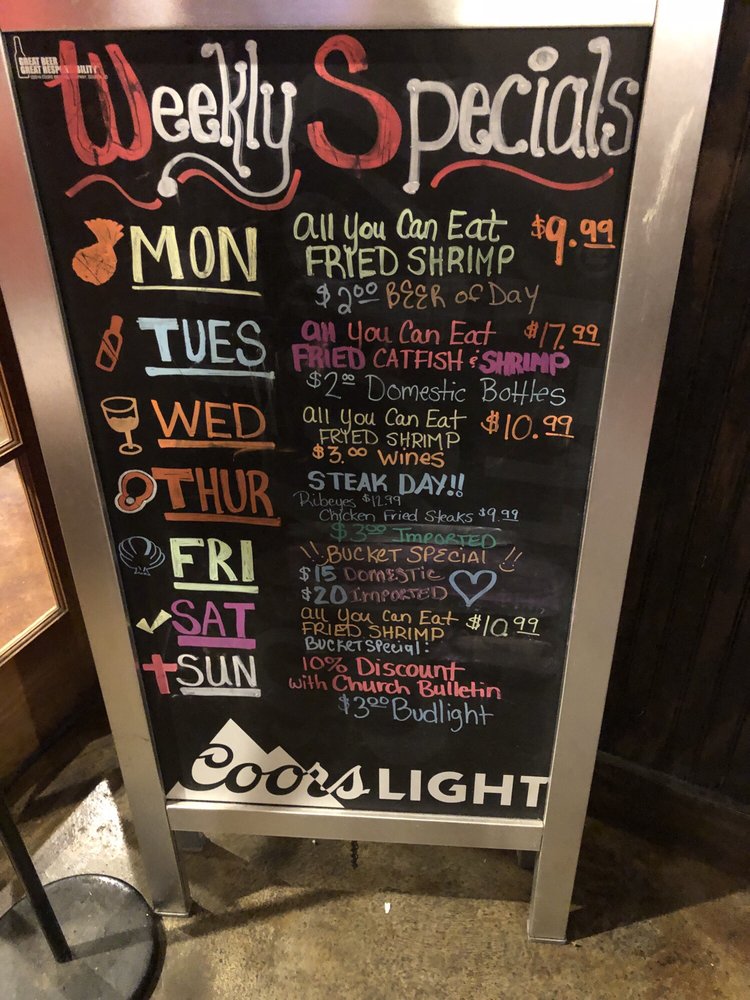 GREAT BEER
GREAT RESPONSIBILITY
Weekly Specials
MON
all You Can Eat $9.99
FRIED SHRIMP
$2.00 BEER of Day
TUES
all You Can Eat $17.99
FRIED CATFISH & SHRIMP
$2.00 Domestic Bottles
WED
all You Can Eat $10.99
FRYED SHRIMP
$3.00 WINES
THUR
STEAK DAY!!
Ribeyes $12.99
Chicken Fried Steaks $9.99
$3.00 IMPORTED
FRI
!! BUCKET SPECIAL !!
$15 DOMESTIC
$20 IMPORTED
SAT
all You Can Eat $10.99
FRIED SHRIMP
BUCKET SPECIAL:
SUN
10% Discount
with Church Bulletin
$3.00 Budlight
Coors LIGHT